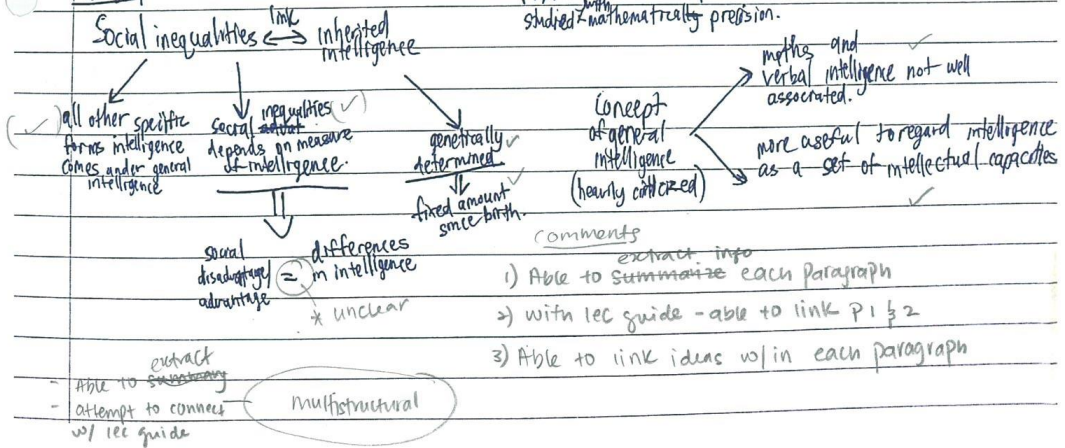 studied with mathematically precision.
Social inequalities link inherited
intelligence
maths and
verbal intelligence not well
associated.
all other specific
forms intelligence
comes under general
intelligence
social inequalities
depends on measure
of intelligence.
genetically
determined
fixed amount
since birth.
concept
of general
intelligence
(heavily criticized)
more useful to regard intelligence
as a set of intellectual capacities
social
disadvantage/
advantage
=
differences
in intelligence
* unclear
comments
1) Able to extract info summarize each paragraph
2) with lec guide - able to link P1 & 2
3) Able to link ideas w/in each paragraph
- Able to extract summary
- attempt to connect
w/ lec guide
multistructural